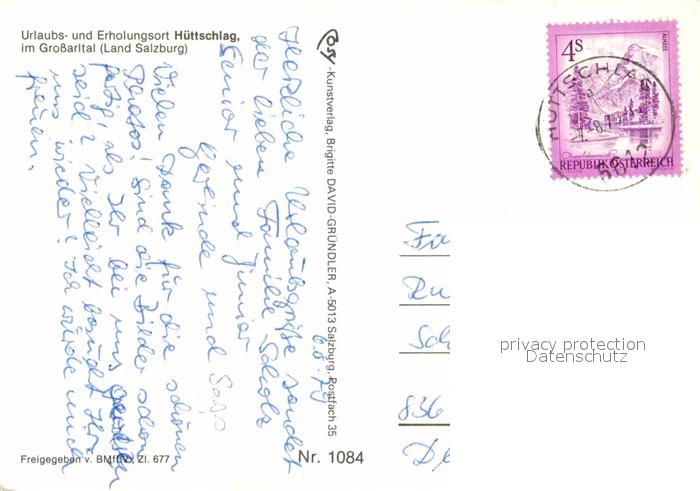 Urlaubs- und Erholungsort Hüttschlag,
im Großarltal (Land Salzburg)
Cosy-Kunstverlag, Brigitte DAVID-GRÜNDLER, A-5013 Salzburg, Postfach 35
6.8.79
Herzliche Urlaubsgrüße sendet
der lieben Familie Scholz
Senior und Junior
Gerinde und Sepp
Vielen Dank für die schönen
Photos! Sind die Bilder schon
fertig? als Ihr bei uns
seid? Vielleicht besucht Ihr
uns wieder? Ich würde mich
freuen.
Freigegeben v. BMfLV, Zl. 677
Nr. 1084
4S
ALMSEE
REPUBLIK ÖSTERREICH
HÜTTSCHLAG
5612
Fa
Du
Sch
836
privacy protection
Datenschutz